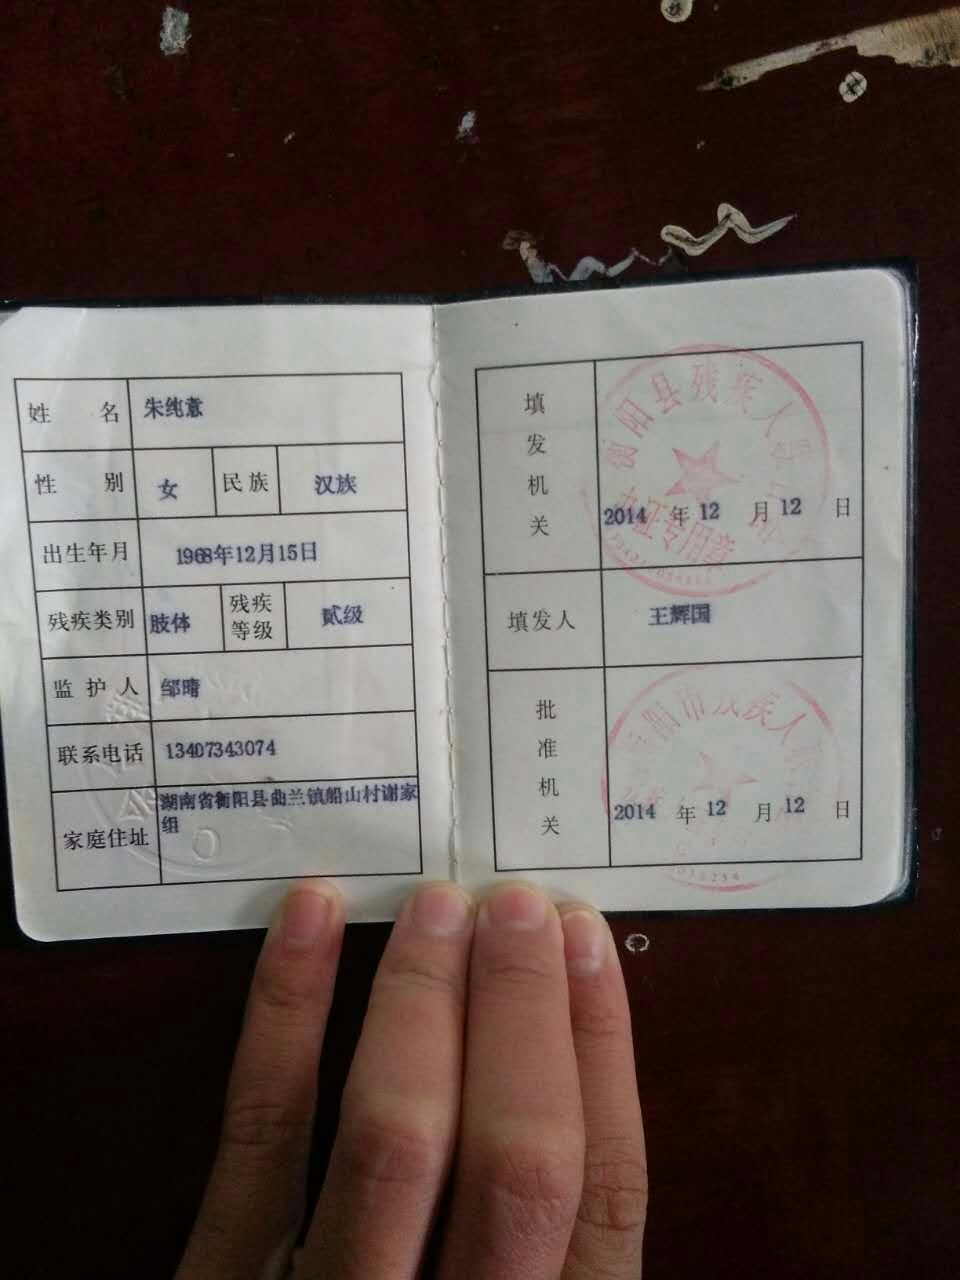 姓 名 朱纯意
性 别 女 民族 汉族
出生年月 1968年12月15日
残疾类别 肢体 残疾等级 贰级
监护人 邹晴
联系电话 13407343074
家庭住址 湖南省衡阳县曲兰镇船山村谢家
组
填发机关
衡阳县残疾人
办证专用章
2014 年 12 月 12 日
填发人 王辉国
批准机关
阳市残疾人
2014 年 12 月 12 日